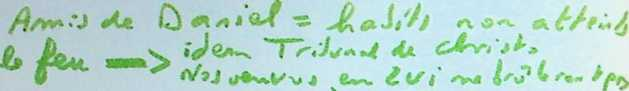 Amis de Daniel = habits non atteints
le feu —> idem Tribunal de christ.
Nos œuvres en Lui ne brûleront pas